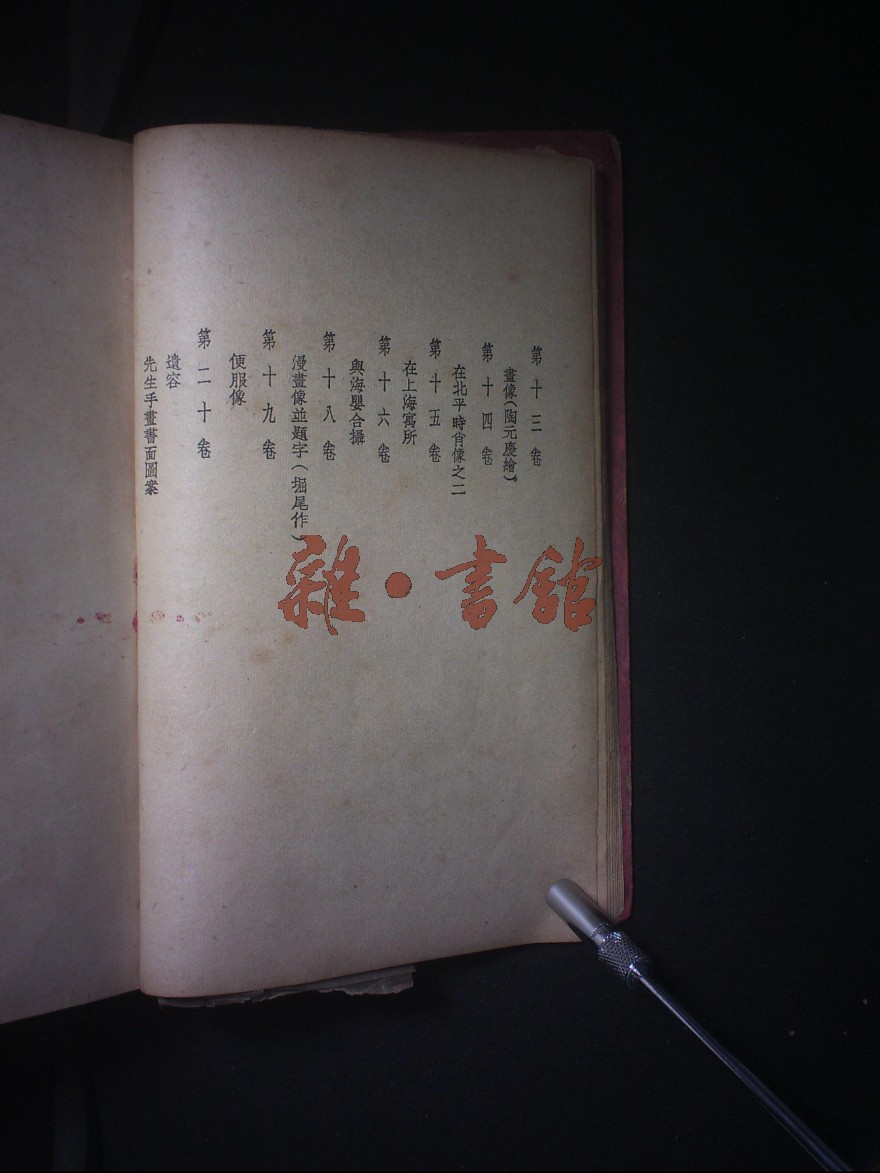 第十三卷
畫像(陶元慶繪)
第十四卷
在北平時肖像之二
第十五卷
在上海寓所
第十六卷
與海嬰合攝
第十八卷
漫畫像並題字(堀尾作)
第十九卷
便服像
第二十卷
遺容
先生手畫書面圖案
雜•書館